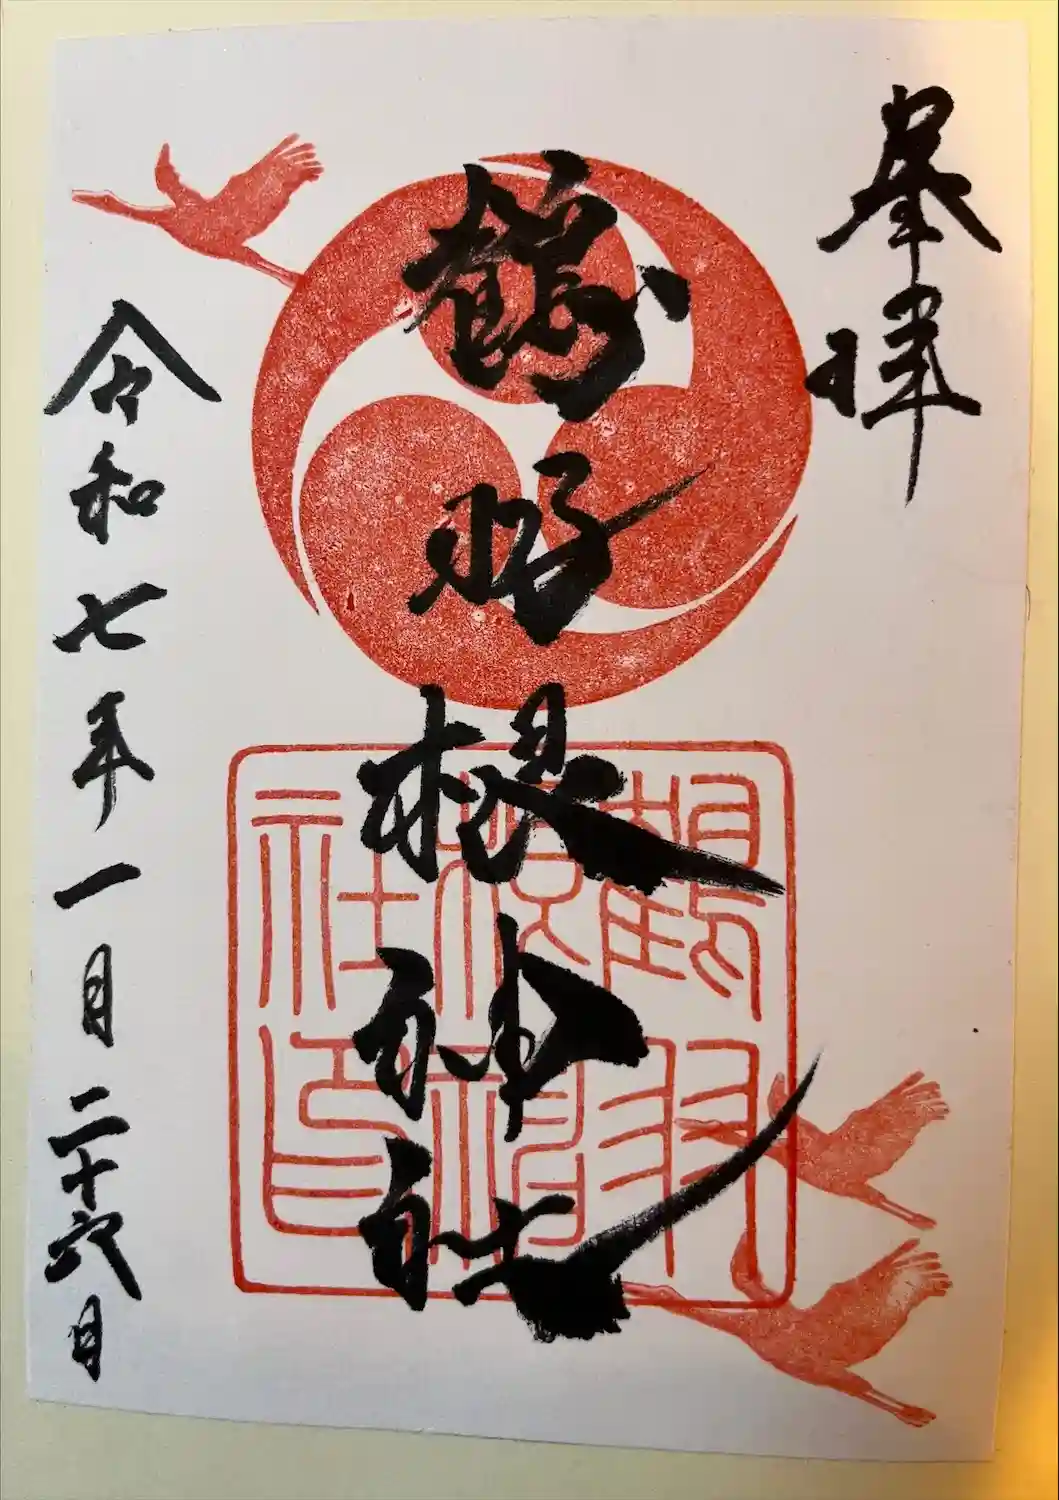 奉拝
鶴羽根神社
鶴羽
根神
社印
令和七年一月二十六日